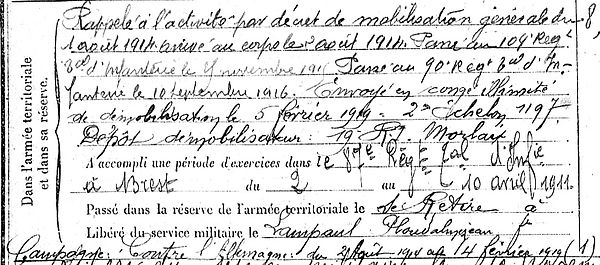 Rappelé à l'activité par décret de mobilisation générale du
1 août 1914 arrivé au corps le août 1914. Passé au 109e Régt
Tal d'Infanterie le novembre 191 Passé au 90e Régt Tal d'In-
fanterie le 10 septembre 1916. Envoyé en congé illimité
de démobilisation le 5 février 1919 - 2e Échelon 1197
Dépôt démobilisateur: 19e Morlaix
Dans l'armée territoriale
et dans sa réserve.
A accompli une période d'exercices dans le 87e Régt Tal d'Infie
à Brest du 2 au 10 avril 1911.
Passé dans la réserve de l'armée territoriale le se Retire à
Libéré du service militaire le Lampaul Ploudalmézeau
Campagne: Contre l'Allemagne: du août 1914 au 14 février 1919 (1)